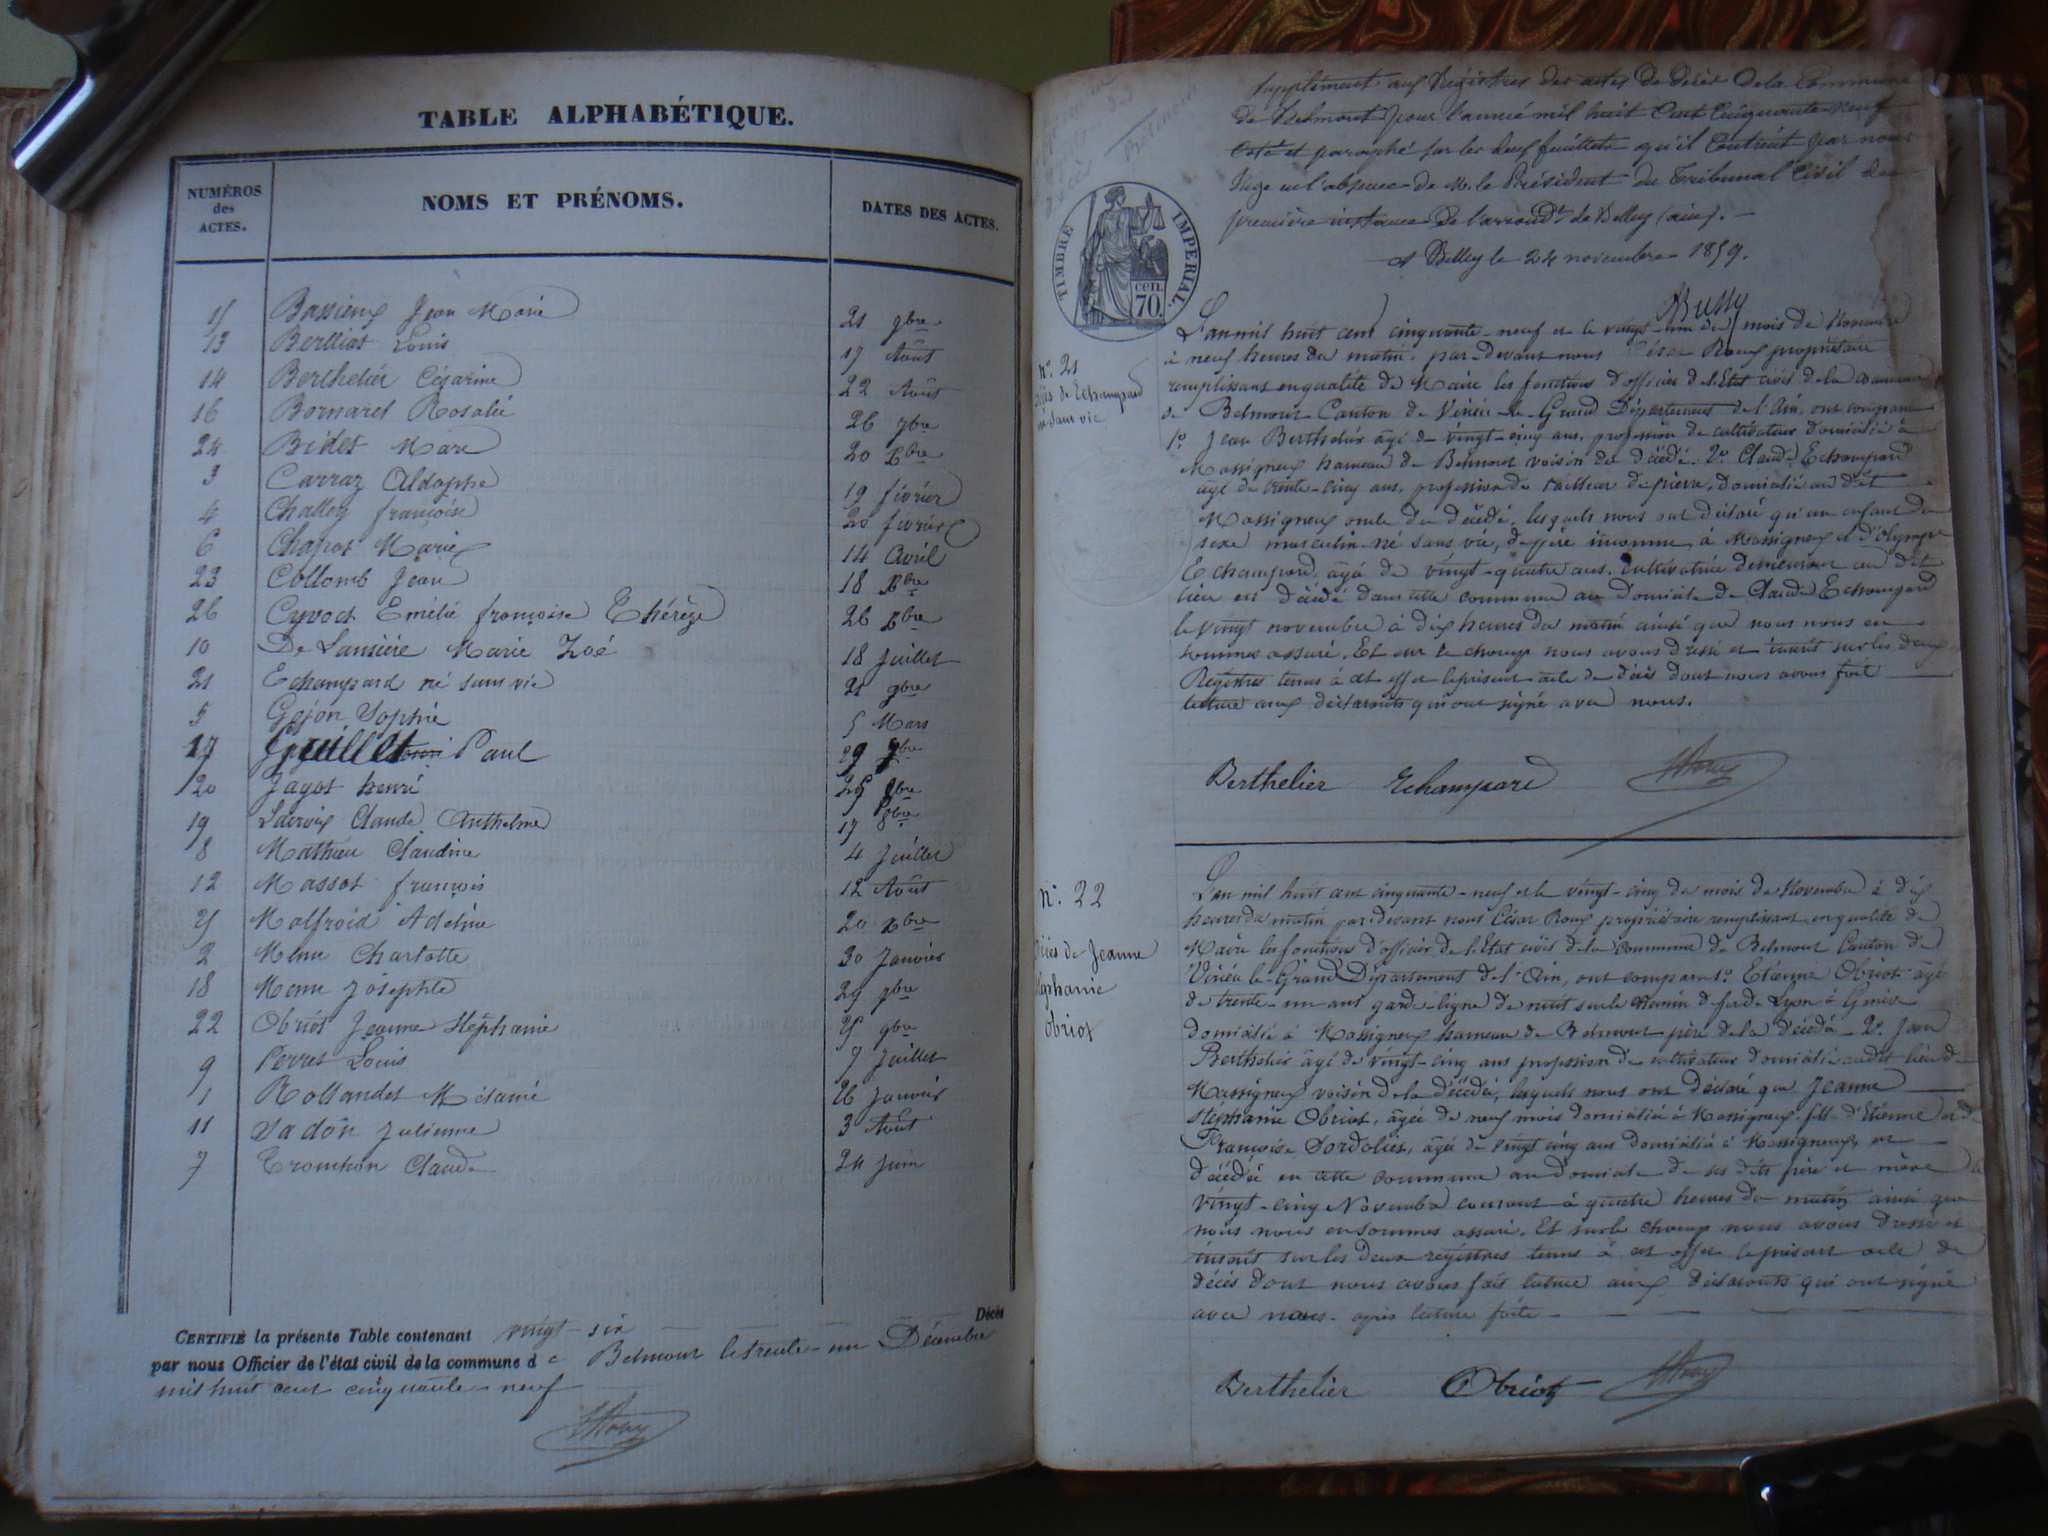 TABLE ALPHABÉTIQUE.
NUMÉROS des ACTES.
NOMS ET PRÉNOMS.
DATES DES ACTES.
15 Bassieux Jean Marie 21 9bre
13 Berlliat Louis 17 Août
14 Berthelier Césarine 22 Août
16 Bornarel Rosalie 26 9bre
24 Bidet Marie 20 Xbre
3 Carraz Aldophe 19 février
4 Challey françoise 20 février
6 Chapot Marie 14 avril
23 Collomb Jean 18 Xbre
26 Cyvoct Emélie françoise Thérèze 26 Xbre
10 De Lauzière Marie Zoé 18 Juillet
21 Echampard né sans vie 21 9bre
5 Gojon Sophie 5 Mars
17 Guillet Paul 29 9bre
20 Jayot henri 25 8bre
19 Lacroix Claude Anthelme 17 8bre
8 Mathieu Claudine 4 Juillet
12 Massot françois 12 Août
25 Molfroid Adeline 20 Xbre
2 Menu Charlotte 30 Janvier
18 Menu Josephte 29 9bre
22 Obriot Jeanne Stéphanie 25 9bre
9 Perret Louis 7 Juillet
1 Rollandet Mélanie 26 Janvier
11 Vadon Julienne 3 Août
7 Trouchon Claude 24 Juin
CERTIFIÉ la présente Table contenant vingt-six Décès
par nous Officier de l'état civil de la commune de Belmont le trente-un Décembre
mil huit cent cinquante-neuf
Supplément aux Régistres des actes de décès de la Commune
de Belmont pour l'année mil huit cent cinquante neuf
coté et paraphé sur les deux feuillets qu'il contient par nous
Juge en l'absence de M. le Président du Tribunal Civil de
première instance de l'arrondt de Belley (ain).
A Belley le 24 novembre 1859.
TIMBRE IMPERIAL.
70. CEN.
Bussy
n°. 21
décès de Echampard
né sans vie
L'an mil huit cent cinquante-neuf et le vingt-un du mois de Novembre
à neuf heures du matin, par-devant nous César Roux propriétaire
remplissant en qualité de Maire les fonctions d'officier de l'Etat civil de la commune
de Belmont Canton de Virieu-le-Grand Département de l'Ain, ont comparu
1°. Jean Berthelier âgé de vingt-cinq ans, profession de cultivateur domicilié à
Massigneux hameau de Belmont voisin du décédé. 2°. Claude Echampard
âgé de trente-cinq ans, profession de tailleur de pierre, domicilié au dit
Massigneux oncle du décédé, lesquels nous ont déclaré qu'un enfant du
sexe masculin né sans vie, de père inconnu, à Massigneux et d'Olympe
Echampard, âgée de vingt-quatre ans, cultivatrice demeurant au dit
lieu est décédé dans cette commune au domicile de Claude Echampard
le vingt novembre à dix heures du matin ainsi que nous nous en
sommes assuré. Et sur le champ nous avons dressé et inscrit sur les deux
Registres tenus à cet effet le présent acte de décès dont nous avons fait
lecture aux déclarants qui ont signé avec nous.
Berthelier Echampard
N°. 22
Décès de Jeanne
Stéphanie
Obriot
L'an mil huit cent cinquante-neuf et le vingt-cinq du mois de Novembre à dix
heures du matin par devant nous César Roux propriétaire remplissant en qualité de
Maire les fonctions d'officier de l'Etat civil de la commune de Belmont Canton de
Virieu-le-Grand Département de l'Ain, ont comparu 1°. Etienne Obriot âgé
de trente-un ans garde-ligne de nuit sur le chemin de fer de Lyon à Genève
domicilié à Massigneux hameau de Belmont père de la décédée 2°. Jean
Berthelier âgé de vingt-cinq ans profession de cultivateur domicilié audit lieu de
Massigneux voisin de la décédée, lesquels nous ont déclaré que Jeanne
Stéphanie Obriot, âgée de neuf mois domiciliée à Massigneux fille d'Etienne et de
Françoise, âgée de vingt cinq ans domiciliée à Massigneux, est
décédée en cette commune au domicile de ses dits père et mère le
vingt-cinq Novembre courant à quatre heures du matin ainsi que
nous nous en sommes assuré. Et sur le champ nous avons dressé et
inscrit sur les deux registres tenus à cet effet le présent acte de
décès dont nous avons fait lecture aux déclarants qui ont signé
avec nous. après lecture faite
Berthelier Obriot